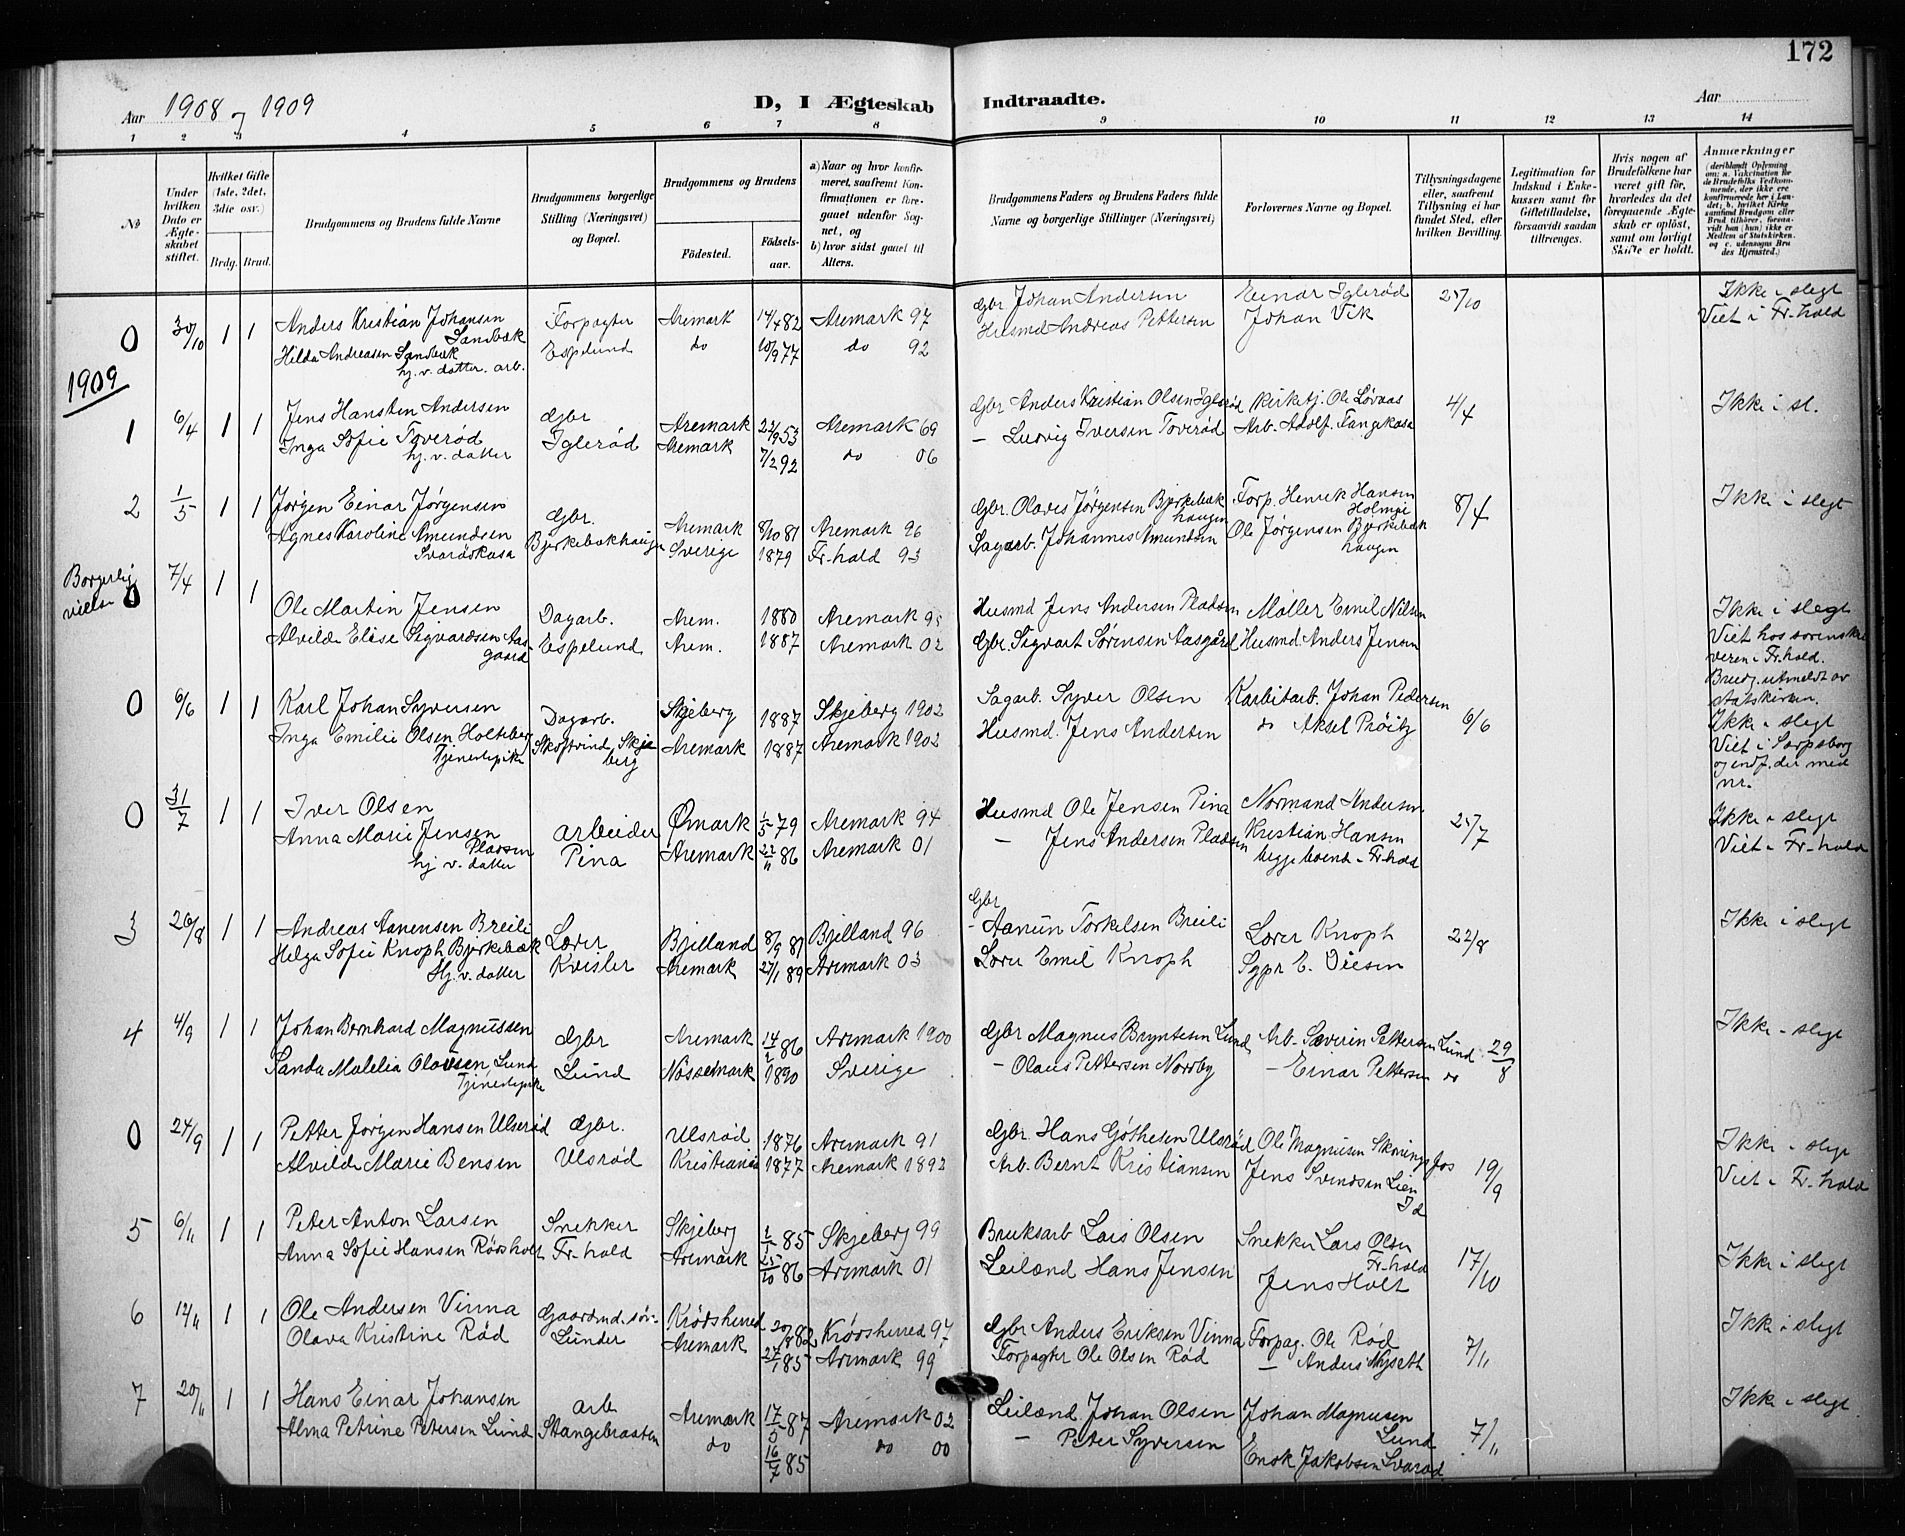 172
Aar 1908 og 1909
D, I Ægteskab Indtraadte.
Aar
1 2 3 4 5 6 7 8 9 10 11 12 13 14
No
Under hvilken Dato er Ægteskabet stiftet.
Hvilket Gifte (1ste, 2det, 3die osv.)
Brdg. Brud.
Brudgommens og Brudens fulde Navne
Brudgommens borgerlige Stilling (Næringsvei) og Bopæl.
Brudgommens og Brudens
Fødested.
Fødselsaar.
a) Naar og hvor konfirmeret, saafremt Konfirmationen er foregaaet udenfor Sognet, og
b) hvor sidst gaaet til Alters.
Brudgommens Faders og Brudens Faders fulde Navne og borgerlige Stillinger (Næringsvei)
Forlovernes Navne og Bopæl.
Tillysningsdagene eller, saafremt Tillysning ei har fundet Sted, efter hvilken Bevilling.
Legitimation for Indskud i Enkekassen samt for Giftetilladelse, forsaavidt saadan tiltrænges.
Hvis nogen af Brudefolkene har været gift før, hvorledes da det foregaaende Ægteskab er opløst, samt om lovligt Skifte er holdt.
Anmærkninger
0 30/10 1 1 Anders Kristian Johansen Sandbæk Forpagter Aremark 17/4 82 Aremark 97 Gbr Johan Andersen Einar Iglerød 25/10 Ikke i slegt
Hilda Andreasen Sandbæk Espelund do 10/9 77 do 92 Husmd Andreas Pettersen Johan Vik Viet i Fr-hald
hj. v. datter. arb.
1909
1 6/4 1 1 Jens Hansten Andersen Gbr Aremark 22/9 53 Aremark 69 Gbr Anders Kristian Olsen Iglerød Kirketj. Ole Løvaas 4/4 Ikke i sl.
Inga Sofie Toverød Iglerød Aremark 7/2 92 do 06 — Ludvig Iversen Toverød Arb. Adolf Fangekasa
hj. v. datter
2 1/5 1 1 Jørgen Einar Jørgensen Gbr. Aremark 8/10 81 Aremark 96 Gbr. Olaves Jørgensen Bjerkebækhaugen Forp. Henrik Hansen Holmgi 8/4 Ikke i slegt
Agnes Karoline Amundsen Svarødkasa Bjerkebækhaugen Sverige 1879 Fr-hald 93 Sagarb. Johannes Amundsen Ole Jørgensen Bjerkebækhaugen
Borgerlig vielse 0 7/4 1 1
Ole Martin Jensen Dagarb. Arem. 1880 Aremark 95 Husmd Jens Andersen Pladsen Møller Emil Nilsen Ikke i slegt
Alvilde Elise Sigvardsen Aasgaard Espelund Arem. 1887 Aremark 02 Gbr. Sigvart Sørensen Aasgård Husmd. Anders Jensen Viet hos sorenskriveren i Fr.hald.
Brudg. utmeldt av statskirken.
0 6/6 1 1 Karl Johan Syversen Dagarb. Skjeberg 1887 Skjeberg 1902 Sagarb. Syver Olsen Karbitarb. Johan Pedersen 6/6 Ikke i slegt
Inga Emilie Olsen Holteberg Tjenestepike Skjeberg Aremark 1887 Aremark 1902 Husmd. Jens Andersen do Aksel Prøitz Viet i Sarpsborg og indf. der med nr.
0 31/7 1 1 Iver Olsen arbeider Ømark 1/5 79 Aremark 94 Husmd Ole Jensen Pina Normand Andersen 25/7 Ikke i slegt
Anna Marie Jensen Pladsen Pina Aremark 22/11 86 Aremark 01 — Jens Andersen Pladsen Kristian Hansen Viet i Fr-hald
hj v. datter begge boende i Fr.hald
3 26/8 1 1 Andreas Aanensen Breili Lærer Bjelland 8/9 81 Bjelland 96 Gbr Aanun Torkelsen Breili Lærer Knoph 22/8 Ikke i slegt
Helga Sofie Knoph Bjerkebæk Kvisler Aremark 27/1 89 Aremark 03 Lærer Emil Knoph Sgpr E. Digsen
Hj. v. datter
4 4/9 1 1 Johan Bernhard Magnussen Gbr Aremark 14/2 86 Aremark 1900 Gbr Magnus Bryntesen Lund Arb. Severin Pettersen Lund 29/8 Ikke i slegt
Sanda Malelia Olausen, Lund Tjenestepike Lund Nøssemark 1890 Sverige — Olaus Pettersen Norrby — Einar Pettersen do
0 24/9 1 1 Petter Jørgen Hansen Ulsrød Gbr. Ulsrød 1876 Aremark 91 Gbr. Hans Gøthesen Ulsrød Ole Magnusen Skøningsfos 19/9 Ikke i slegt
Alvilde Marie Bensen Ulsrød Kristiania 1877 Aremark 1892 Arb. Bernt Kristiansen Jens Svendsen Lien Id Viet i Fr. hald
5 6/11 1 1 Peter Anton Larsen Snekker Skjeberg 2/1 85 Skjeberg 99 Bruksarb Lars Olsen Snekker Lars Olsen Fr.hald 17/10 Ikke i slegt
Anna Sofie Hansen Rørsholt Fr-hald Aremark 25/10 86 Aremark 01 Leilænd Hans Jensen Jens Holt
6 12/11 1 1 Ole Andersen Vinna Gaardmd. sør- Krødsherred 20/8 82 Krødsherred 97 Gbr Anders Eriksen Vinna Forpag. Ole Rød 7/11 Ikke i slegt
Olava Kristine Rød Lunder Aremark 27/1 85 Aremark 99 Forpagter Ole Olsen Rød — Anders Nyseth
7 20/11 1 1 Hans Einar Johansen arb Aremark 17/5 87 Aremark 02 Leilænd Johan Olsen Johan Magnusen Lund 7/11 Ikke i slegt
Alma Petrine Petersen Lund Stangebraaten do 16/7 85 do 00 — Peter Syversen Enok Jakobsen Svarød